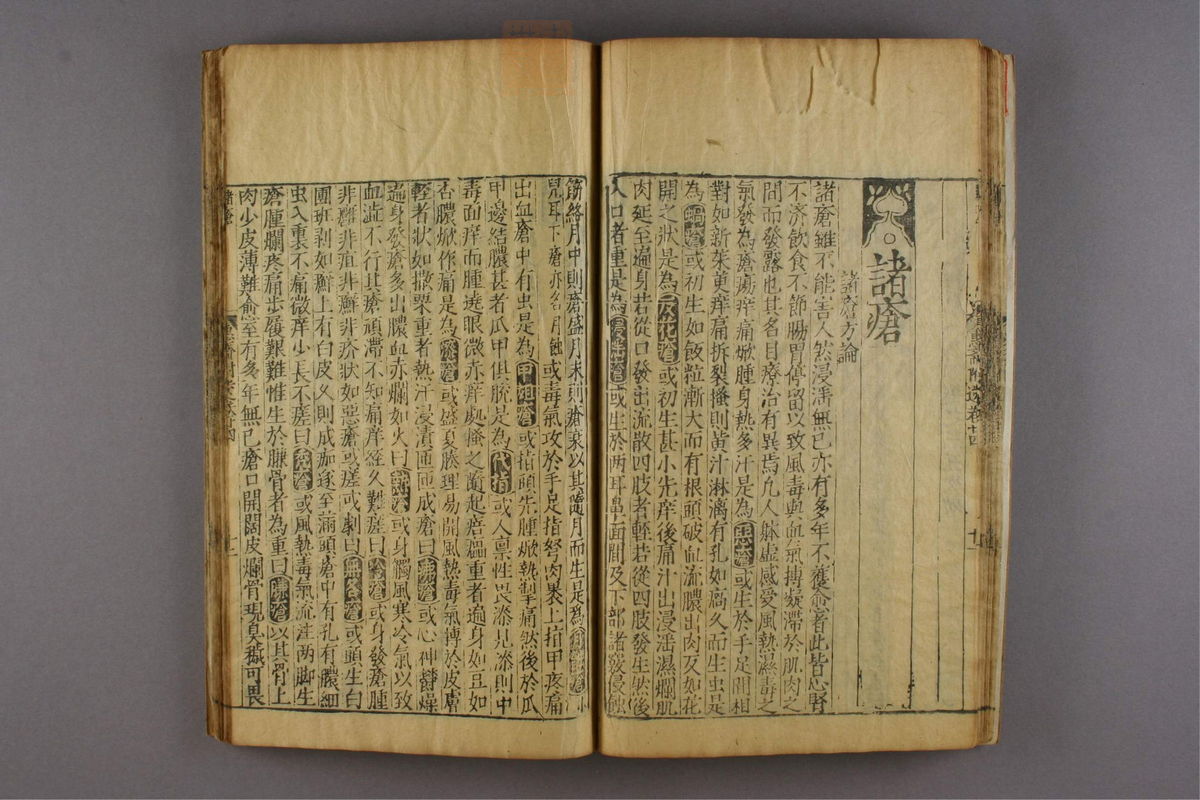 諸瘡
諸瘡方論
諸瘡雖不能害人然浸淫無已亦有多年不獲愈者此皆心腎
不濟飲食不節腸胃停留以致風毒與血氣搏凝滯於肌肉之
間而發露也其名目療治有異焉凡人躰虛感受風熱濕毒之
氣發為瘡瘍痒痛焮腫身熱多汗是為惡瘡或生於手足間相
對如新茱萸痒痛拆裂搔則黃汁淋漓有孔如瘑久而生虫是
為瘑瘡或初生如飯粒漸大而有根頭破血流膿出肉反如花
開之狀是為反花瘡或初生甚小先痒後痛汁出浸淫濕爛肌
肉延至遍身若從口發出流散四肢者輕若從四肢發生然後
入口者重是為浸淫瘡或生於兩耳鼻面間及下部諸竅侵蝕
筋絡月中則瘡盛月末則瘡衰以其隨月而生是為月蝕瘡小
兒耳下瘡亦名月蝕或毒氣攻於手足指努肉裹上指甲疼痛
出血瘡中有虫是為甲疽瘡或指頭先腫焮熱掣痛然後於爪
甲邊結膿甚者爪甲俱脫是為代指或人禀性畏漆見漆則中
毒面痒而腫遶眼微赤痒處搔之隨起㾦㿔重者遍身如豆如
杏膿焮作痛是為漆瘡或盛夏腠理易開風熱毒氣搏於皮膚
輕者狀如撒粟重者熱汗浸漬匝匝成瘡曰痱瘡或心神鬱燥
遍身發瘡多出膿血赤爛如火曰熱瘡或身觸風寒冷氣以致
血澁不行其瘡頑滯不知痛痒經久難瘥曰冷瘡或身發瘡腫
非癰非疽非癬非疥狀如惡瘡或瘥或劇曰無名瘡或頭生白
團班剥如癬上有白皮久則成痂遂至滿頭瘡中有孔有膿細
虫入裏不痛微痒少長不瘥曰禿瘡或風熱毒氣流注兩脚生
瘡腫爛疼痛步履艱難惟生於臁骨者為重曰臁瘡以其骨上
肉少皮薄難愈室有多年無已瘡口開闊皮爛骨現臭穢可畏
諸瘡